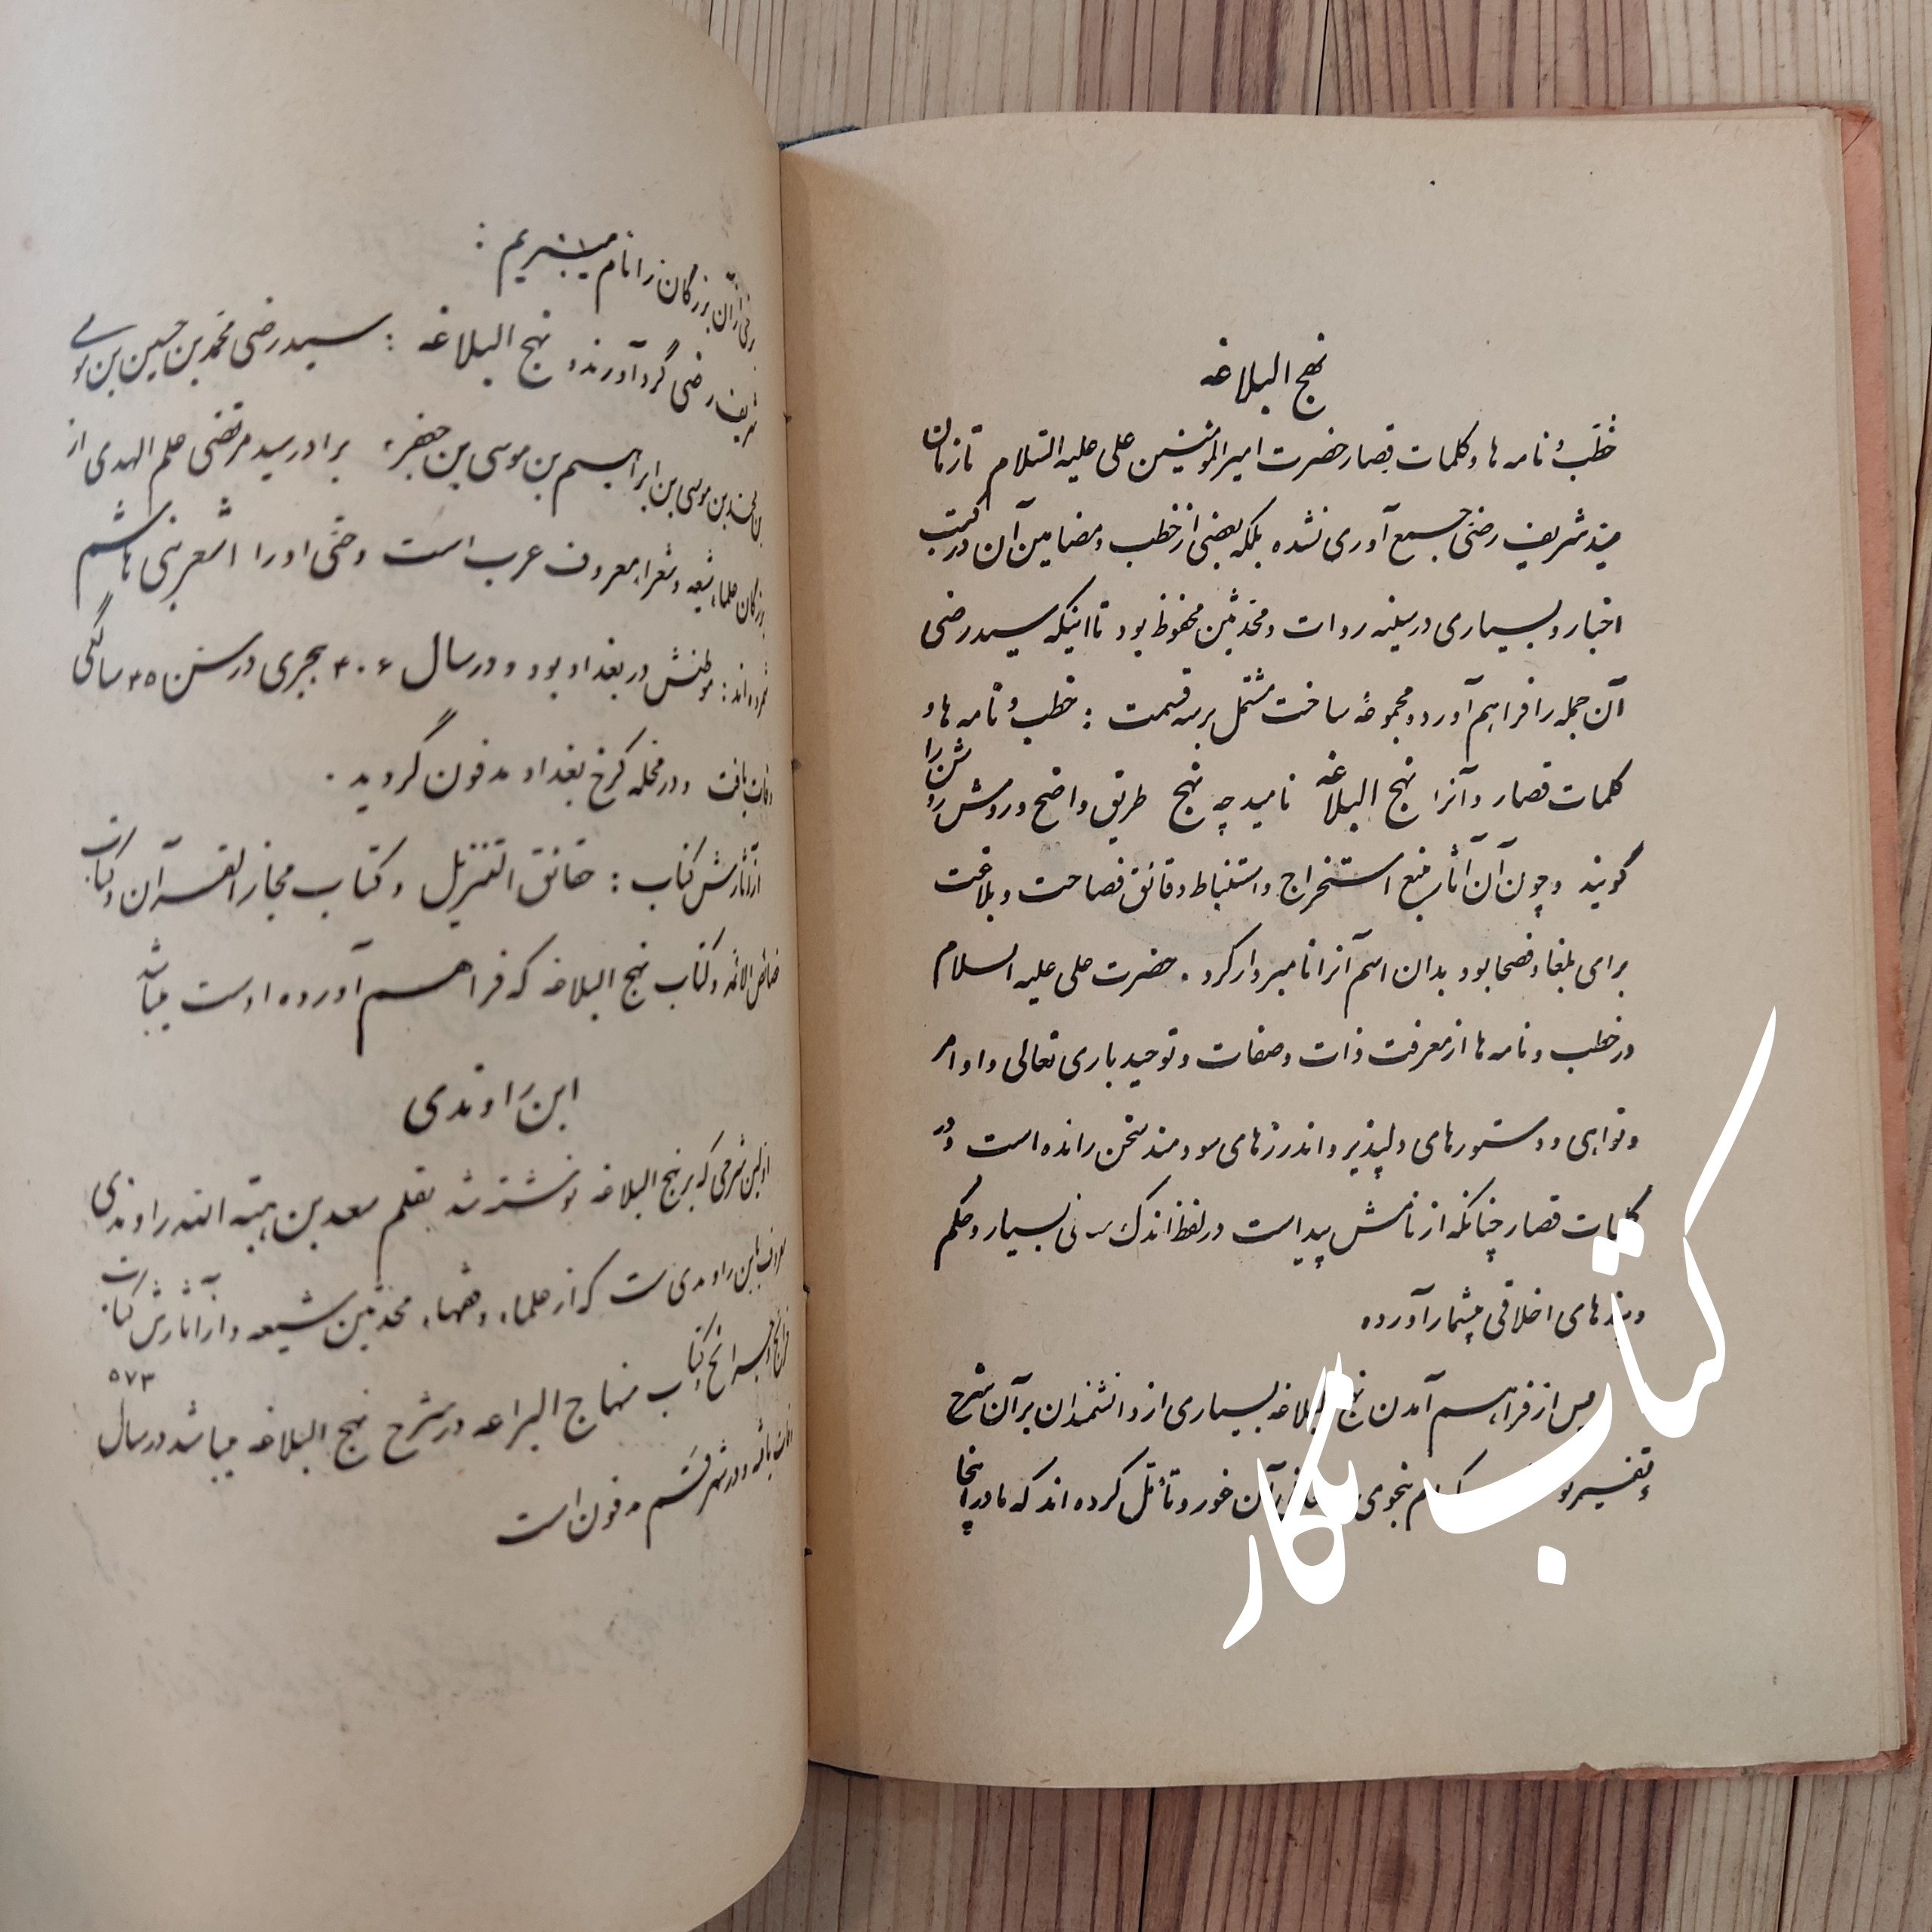 نهج البلاغه
خطب و نامه ها و کلمات قصار حضرت امیرالمؤمنین علی علیه السلام تا زمان
سید شریف رضی جمع آوری نشده بلکه بعضی از خطب و مضامین آن در کتب
اخبار و بسیاری در سینه روات و محدثین محفوظ بود تا اینکه سید رضی
آن جمله را فراهم آورد و مجموعهٔ ساخت مشتمل بر سه قسمت : خطب و نامه ها و
کلمات قصار و آنرا نهج البلاغه نامید چه نهج طریق واضح و روش روشن را
گویند و چون آن آثار منبع استخراج و استنباط دقائق فصاحت و بلاغت
برای بلغا و فصحا بود بدان اسم آنرا نامبردار کرد . حضرت علی علیه السلام
در خطب و نامه ها از معرفت ذات و صفات و توحید باری تعالی و اوامر
و نواهی و دستورهای دلپذیر و اندرزهای سودمند سخن رانده است و در
کلمات قصار چنانکه از نامش پیداست در لفظ اندک معنی بسیار و حکم
و پندهای اخلاقی بشمار آورده
پس از فراهم آمدن نهج البلاغه بسیاری از دانشمندان بر آن شرح
و تفسیر آن غور و تأمل کرده اند که ما در اینجا
کتاب نگار
برخی از آن بزرگان را نام میبریم :
شریف رضی گردآورنده نهج البلاغه : سید رضی محمد بن حسین بن موسی
بن محمد بن موسی بن ابراهیم بن موسی بن جعفر ع برادر سید مرتضی علم الهدی از
بزرگان علماء شیعه و شعراء معروف عرب است و حتی او را اشعر بنی هاشم
شمرده اند : موطنش در بغداد بود و در سال ۴۰۶ هجری در سن ۴۵ سالگی
وفات یافت و در محله کرخ بغداد مدفون گردید .
از آثارش کتاب : حقائق التنزیل و کتاب مجاز القرآن و کتاب
خصائص الائمه و کتاب نهج البلاغه که فراهم آورده اوست میباشد
ابن راوندی
اولین شرحی که بر نهج البلاغه نوشته شد بقلم سعد بن هبة الله راوندی
معروف بابن راوندی ست که از علماء و فقهاء محدثین شیعه و از آثارش کتاب
خرائج و جرائح و کتاب منهاج البراعه در شرح نهج البلاغه میباشد در سال ۵۷۳
وفات یافته و در شهر قم مدفون است